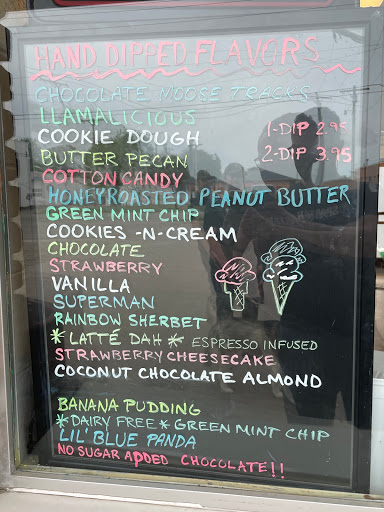 HAND DIPPED FLAVORS
CHOCOLATE MOOSE TRACKS
LLAMALICIOUS
COOKIE DOUGH
1-DIP 2.95
BUTTER PECAN
2-DIP 3.95
COTTON CANDY
HONEYROASTED PEANUT BUTTER
GREEN MINT CHIP
COOKIES -N- CREAM
CHOCOLATE
STRAWBERRY
VANILLA
SUPERMAN
RAINBOW SHERBET
* LATTÉ DAH * ESPRESSO INFUSED
STRAWBERRY CHEESECAKE
COCONUT CHOCOLATE ALMOND
BANANA PUDDING
*DAIRY FREE* GREEN MINT CHIP
LIL' BLUE PANDA
NO SUGAR ADDED CHOCOLATE!!